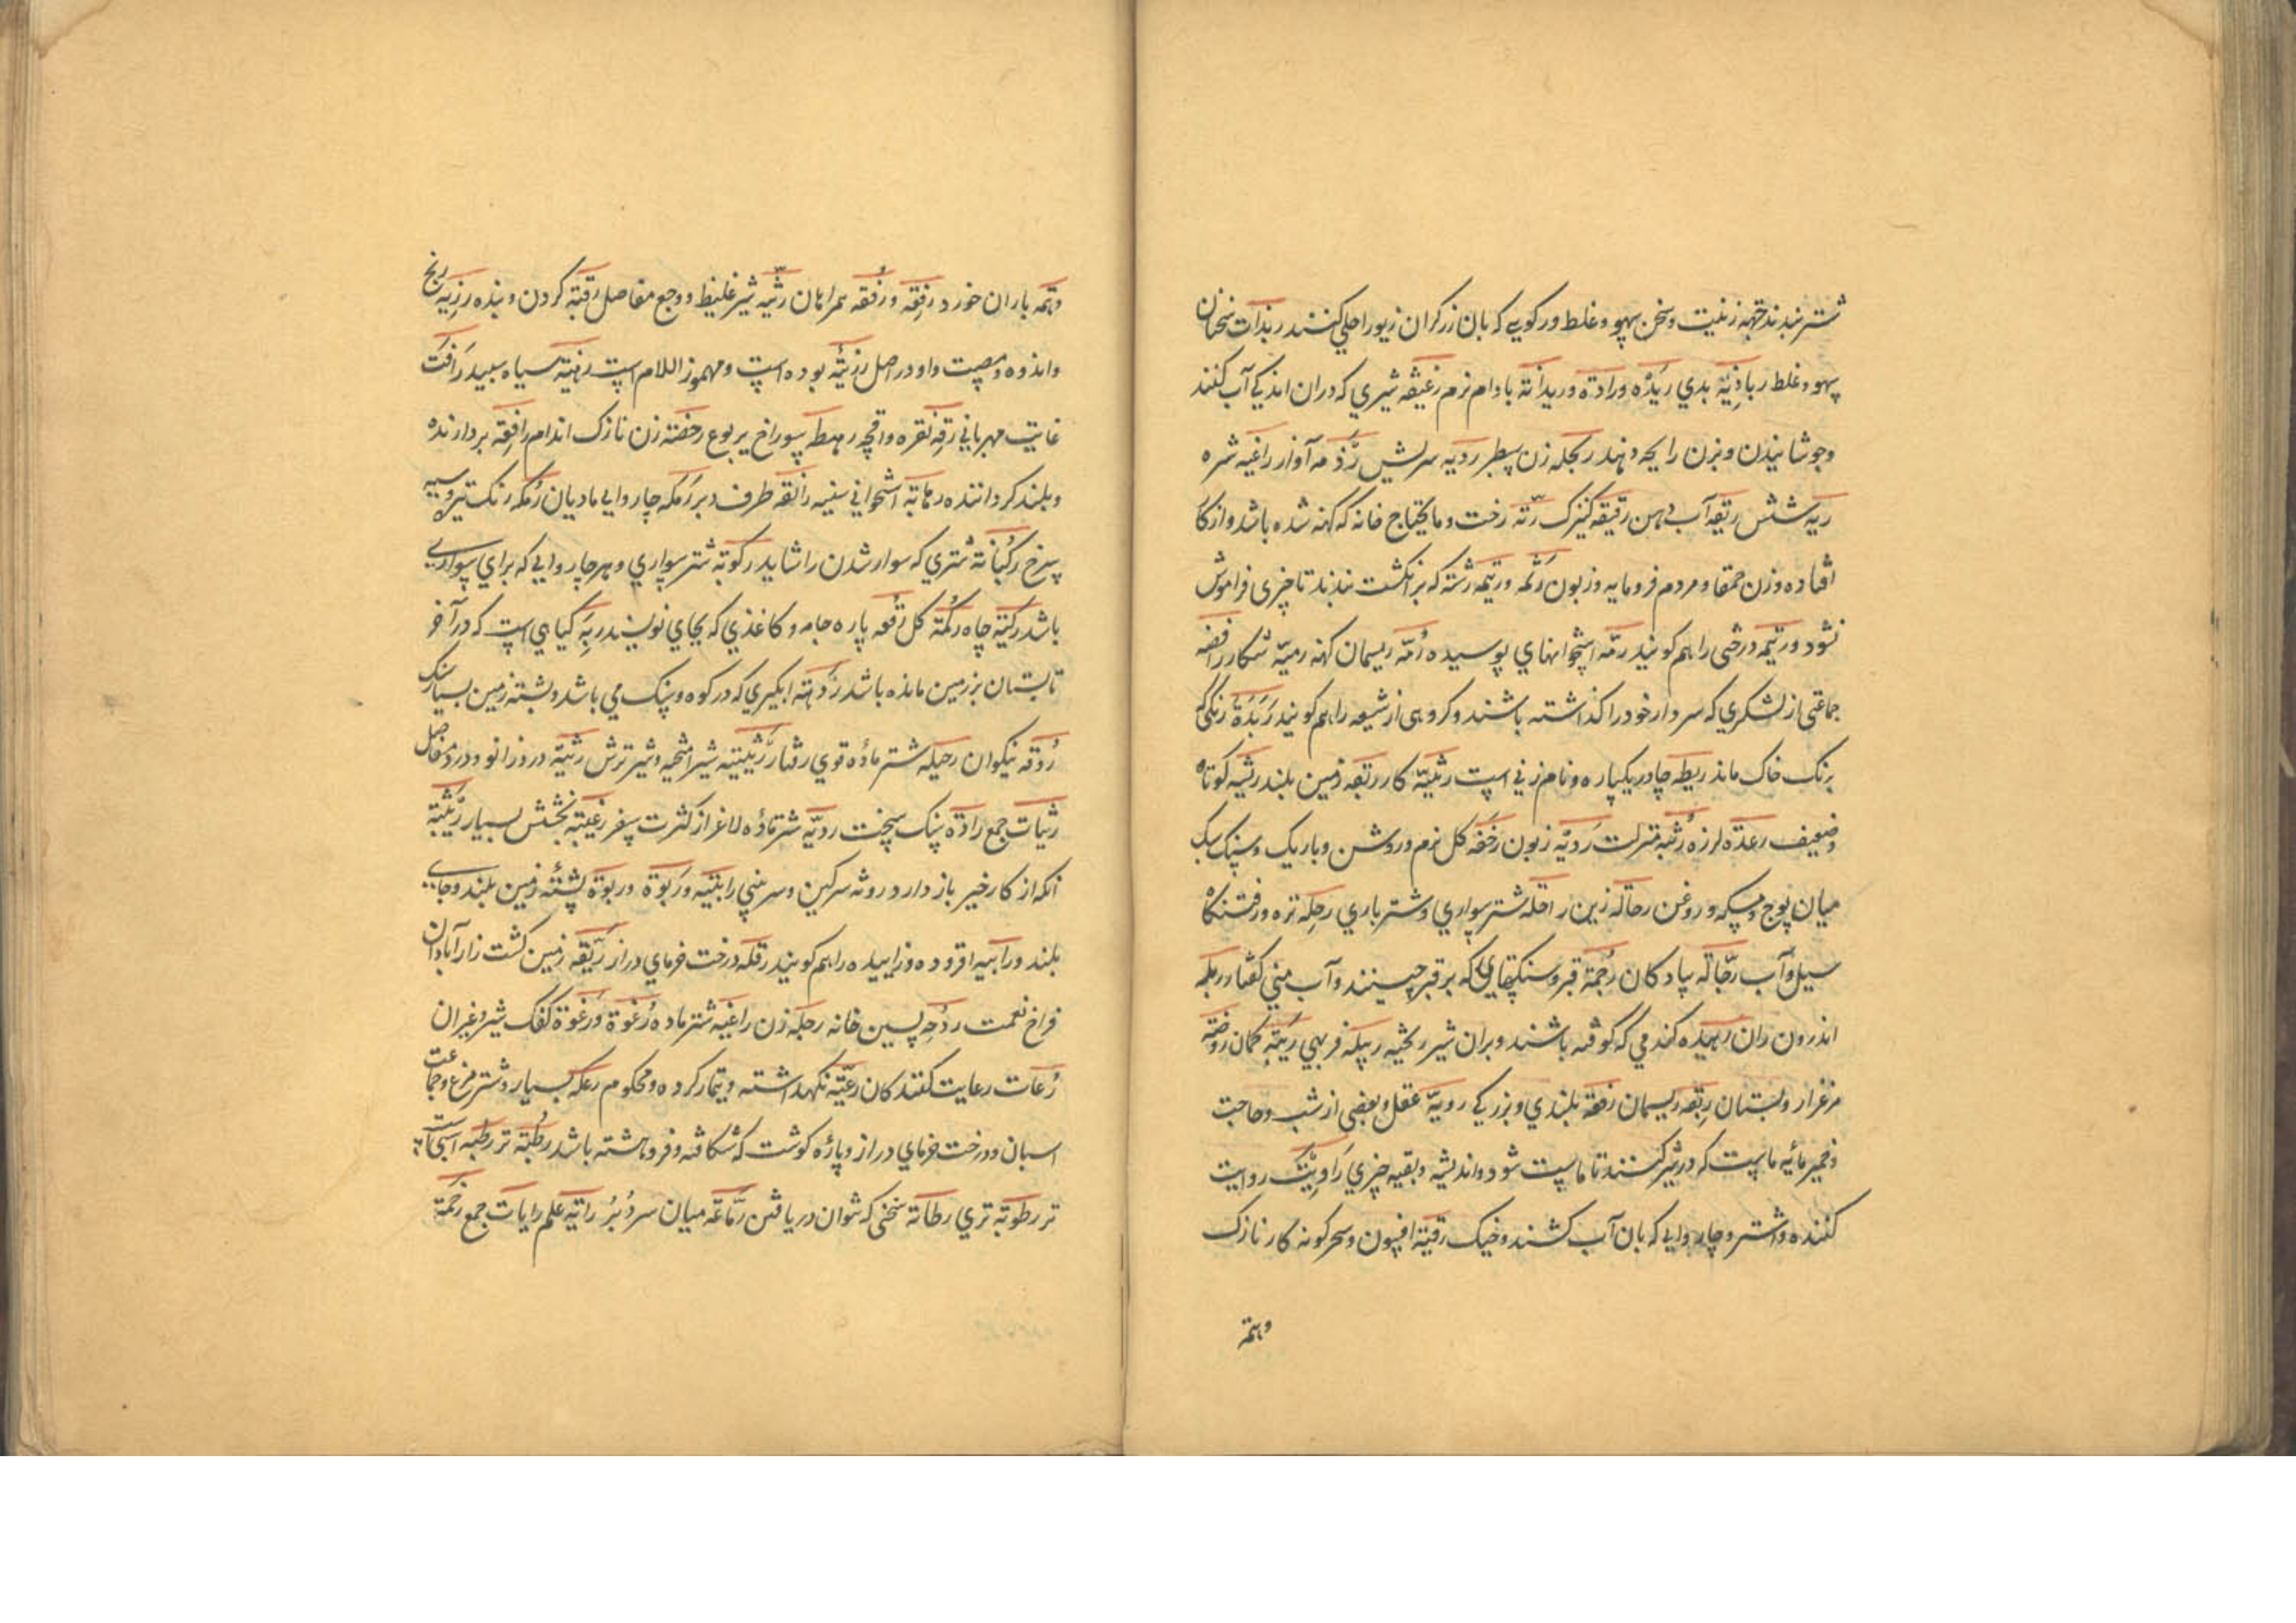 شتر بندند جبهه زینت و سخن سهو و غلط و رکویی که بان زرکران زیور احلی کنند ربذات سخنان
سهو و غلط رباذیة بدی ریده ورادة وریدانة بادام نرم رغیغه شیری که دران اندکی آب کنند
وجوشانیدن وبزن رایحه دهند ربحله زن سطبر ردیه سرلش رذمه آواز راغیه شره
ریه شش ریقه آب دهن رقیقه کنیزک رثة رخت و مایحتاج خانه که کهنه شده باشد و از کار
افتاده وزن حمقا و مردم فرومایه وزبون رثمه ورتیمه رشته که بر انکشت بندند تا چیزی فراموش
نشود ورتیمه درختی را هم کویند رمّه استخوانهای پوسیده رُمّه ریسمان کهنه رمیّه شکار رافضه
جماعتی از لشکری که سردار خود را کذاشته باشند و کروهی از شیعه را هم کویند رَبَدَة رنکی که
برنک خاک ماند ریطه چادر یکپاره و نام زنی است رثیّة کار ربقه زمین بلند رثیه کوتاه
وضعیف رعدة لرزه رُتبة منزلت رَدیّه زبون رخفه کل نرم و روشن و باریک و سنک سبک
میان پوچ و مسکه و روغن رحالة زین راحله شتر سواری و شتر باری رجله تره و رفتنکاه
سیل و آب رجّالة پیادکان رُجمة قبر و سنکهایی که بر قبر چینند و آب منی کفتار ربله
اندرون ران رهیده کندمی که کوفته باشند و بران شیر ریخته ربیله فربهی ریّمة کمان روضه
مرغزار و بستان ربقه ریسمان رفعة بلندی و بزرکی رویّة عقل و بعضی از شب و حاجت
وخمیر مائیه ماست که در شیر کنند تا ماست شود و اندیشه و بقیه چیزی رَاویَتک روایت
کننده و اشتر و چاروایی که بان آب کشند و خیک رقیة افسون و سحر کونه کار نازک
وهمة
وهمه باران خورد رِفقه ورُفقه همراهان رثیّه شیر غلیظ و وجع مفاصل رقبة کردن و بنده رزیّه رنج
واندوه و مصیبت واو در اصل رزیئَة بوده است و مهموز اللام است رهنیّة سیاه سپید رَافت
غایت مهربانی رقه نقره و اقچه رهطه سوراخ یربوع رخصة زن نازک اندام رافِعَة بردارنده
وبلند کرداننده رهابة استخوانی سینه رانفه طرف دبر رَمکه چاروایی مادیان رُمکه رنک تیره و سیه
سرخ رُکبانة شتری که سوار شدن را شاید رکوبة شتر سواری و هر چاروایی که برای سواری
باشد رکیّة چاه رُکمة کل رقعه پاره جامه و کاغذی که بجای نویسند ربّه کیاهی است که در آخر
تابستان بر زمین مانده باشد رَدهة ابکیری که در کوه و سنک می باشد و پشته زمین بسیار سنک
رُوقة نیکوان رحیله شتر ماده قوی رفتار رَثیئه شیر آمیخته و شیر ترش رثیّة درد زانو و درد مفاصل
رثیات جمع رادَة سنک سخت ردیّه شتر ماده لاغر از کثرت سفر رغیبة بخشش بسیار ربیثة
انکه از کار خیر باز دارد روثه سرکین و سر بینی رابیَه ورَبوَة ورِبوَة پشتهٔ زمین بلند و جای
بلند ورابیه افزوده و زاییده را هم کویند رقلَة درخت خرمای دراز ریّقه زمین کشت زار آبادان
فراخ نعمت ردحه پسین خانه رجلَة زن راغیه شتر ماده رُغوَة ورَغوَة کفک شیر و غیر ان
رُعات رعایت کنندکان رعیّة نکهداشته و تیمار کرده و محکوم رعله بسیار و شتر مرغ و جماعت
اسبان و درخت خرمای دراز و پارهٔ کوشت که شکافته و فروهشته باشد رطبَة تر رطبه اسپست
تر رطوبة تری رطانة سخنی که نتوان دریافتن رمّاعَه میان سر دُبر رایَة علم رایات جمع رَحمَة